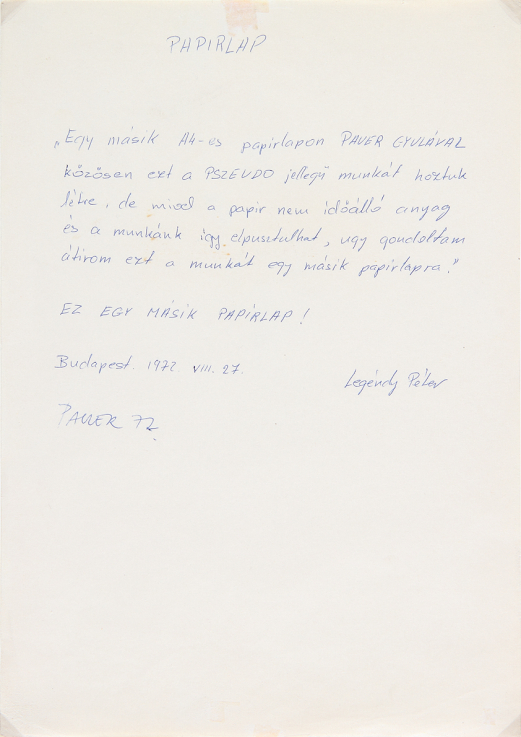 PAPIRLAP
„Egy másik A4-es papirlapon PAUER GYULÁVAL
közösen ezt a PSZEUDO jellegű munkát hoztuk
létre, de mivel a papir nem időálló anyag
és a munkánk igy elpusztulhat, ugy gondoltam
átirom ezt a munkát egy másik papirlapra."
EZ EGY MÁSIK PAPIRLAP!
Budapest. 1972 VIII. 27.
Legéndy Péter
PAUER 72